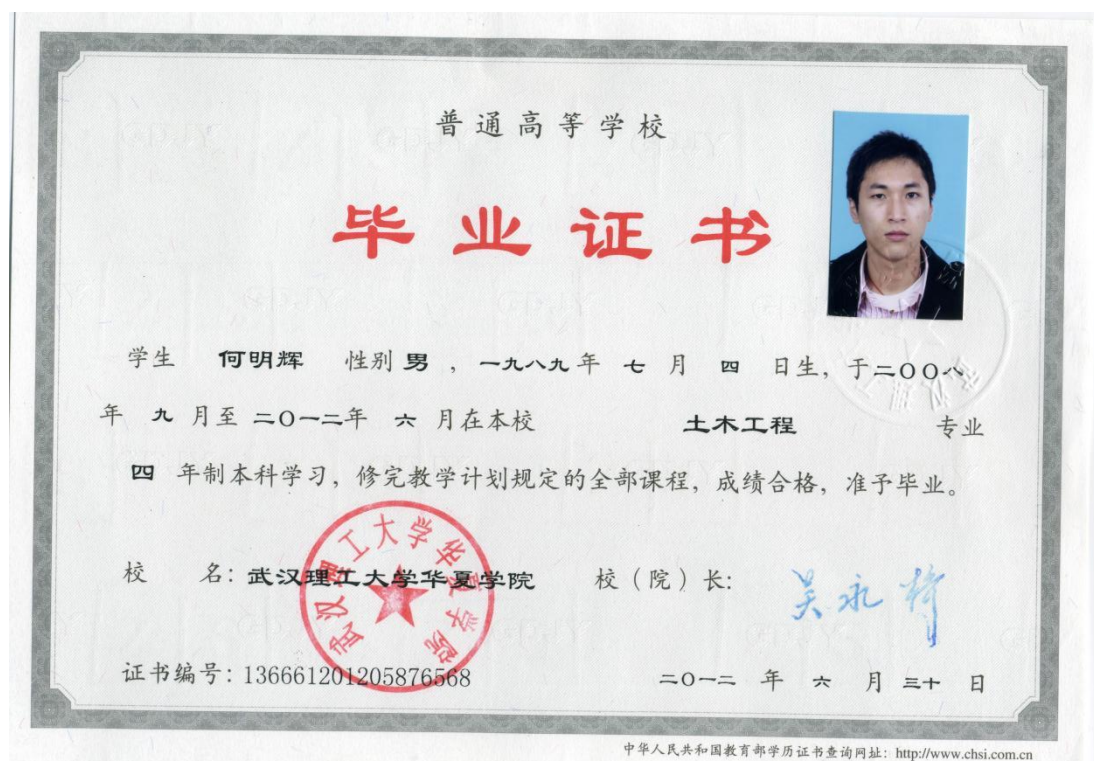 普通高等学校
毕业证书
学生 何明辉 性别 男 ，一九八九年 七 月 四 日生，于二〇〇八
年 九 月至 二〇一二年 六 月在本校 土木工程 专业
四 年制本科学习，修完教学计划规定的全部课程，成绩合格，准予毕业。
武汉理工大学华夏学院
校 名：武汉理工大学华夏学院 校（院）长：
证书编号：136661201205876568 二〇一二 年 六 月 三十 日
中华人民共和国教育部学历证书查询网址：http://www.chsi.com.cn